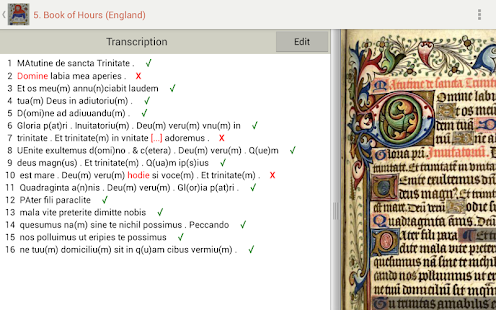 5. Book of Hours (England)
Transcription
Edit
1 MAtutine de sancta Trinitate . ✓
2 Domine labia mea aperies . X
3 Et os meu(m) annu(n)ciabit laudem ✓
4 tua(m) Deus in adiutoriu(m) . ✓
5 D(omi)ne ad adiuuandu(m) . ✓
6 Gloria p(at)ri . Inuitatoriu(m) . Deu(m) veru(m) vnu(m) in ✓
7 trinitate . Et trinitate(m) in vnitate [...] adoremus . X
8 UEnite exultemus d(omi)no . & c(etera) . Deu(m) veru(m) . Q(ue)m ✓
9 deus magn(us) . Et trinitate(m) . Q(ua)m ip(s)ius ✓
10 est mare . Deu(m) veru(m) hodie si voce(m) . Et trinitate(m) . X
11 Quadraginta a(n)nis . Deu(m) veru(m) . Gl(or)ia p(at)ri . ✓
12 PAter fili paraclite ✓
13 mala vite preterite dimitte nobis ✓
14 quesumus na(m) sine te nichil possimus . Peccando ✓
15 nos polluimus ut eripies te possimus ✓
16 ne tuu(m) domiciliu(m) sit in q(u)am cibus vermiu(m) . ✓